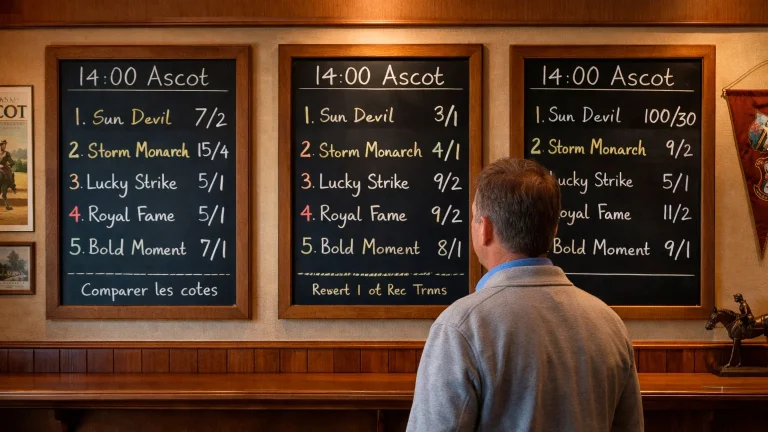 COT
14:00 Ascot
1. Sun Devil 7/2
2. Storm Monarch 15/4
3. Lucky Strike 5/1
4. Royal Fame 5/1
5. Bold Moment 7/1
Comparer les cotes
14:00 Ascot
1. Sun Devil 3/1
2. Storm Monarch 4/1
3. Lucky Strike 9/2
4. Royal Fame 9/2
5. Bold Moment 8/1
Rewert 1 ot Rec Trnns
14:00 Ascot
1. Sun Devil 100/30
2. Storm Monarch 9/2
Lucky Strike 5/1
Royal Fame 11/2
Bold Moment 9/1